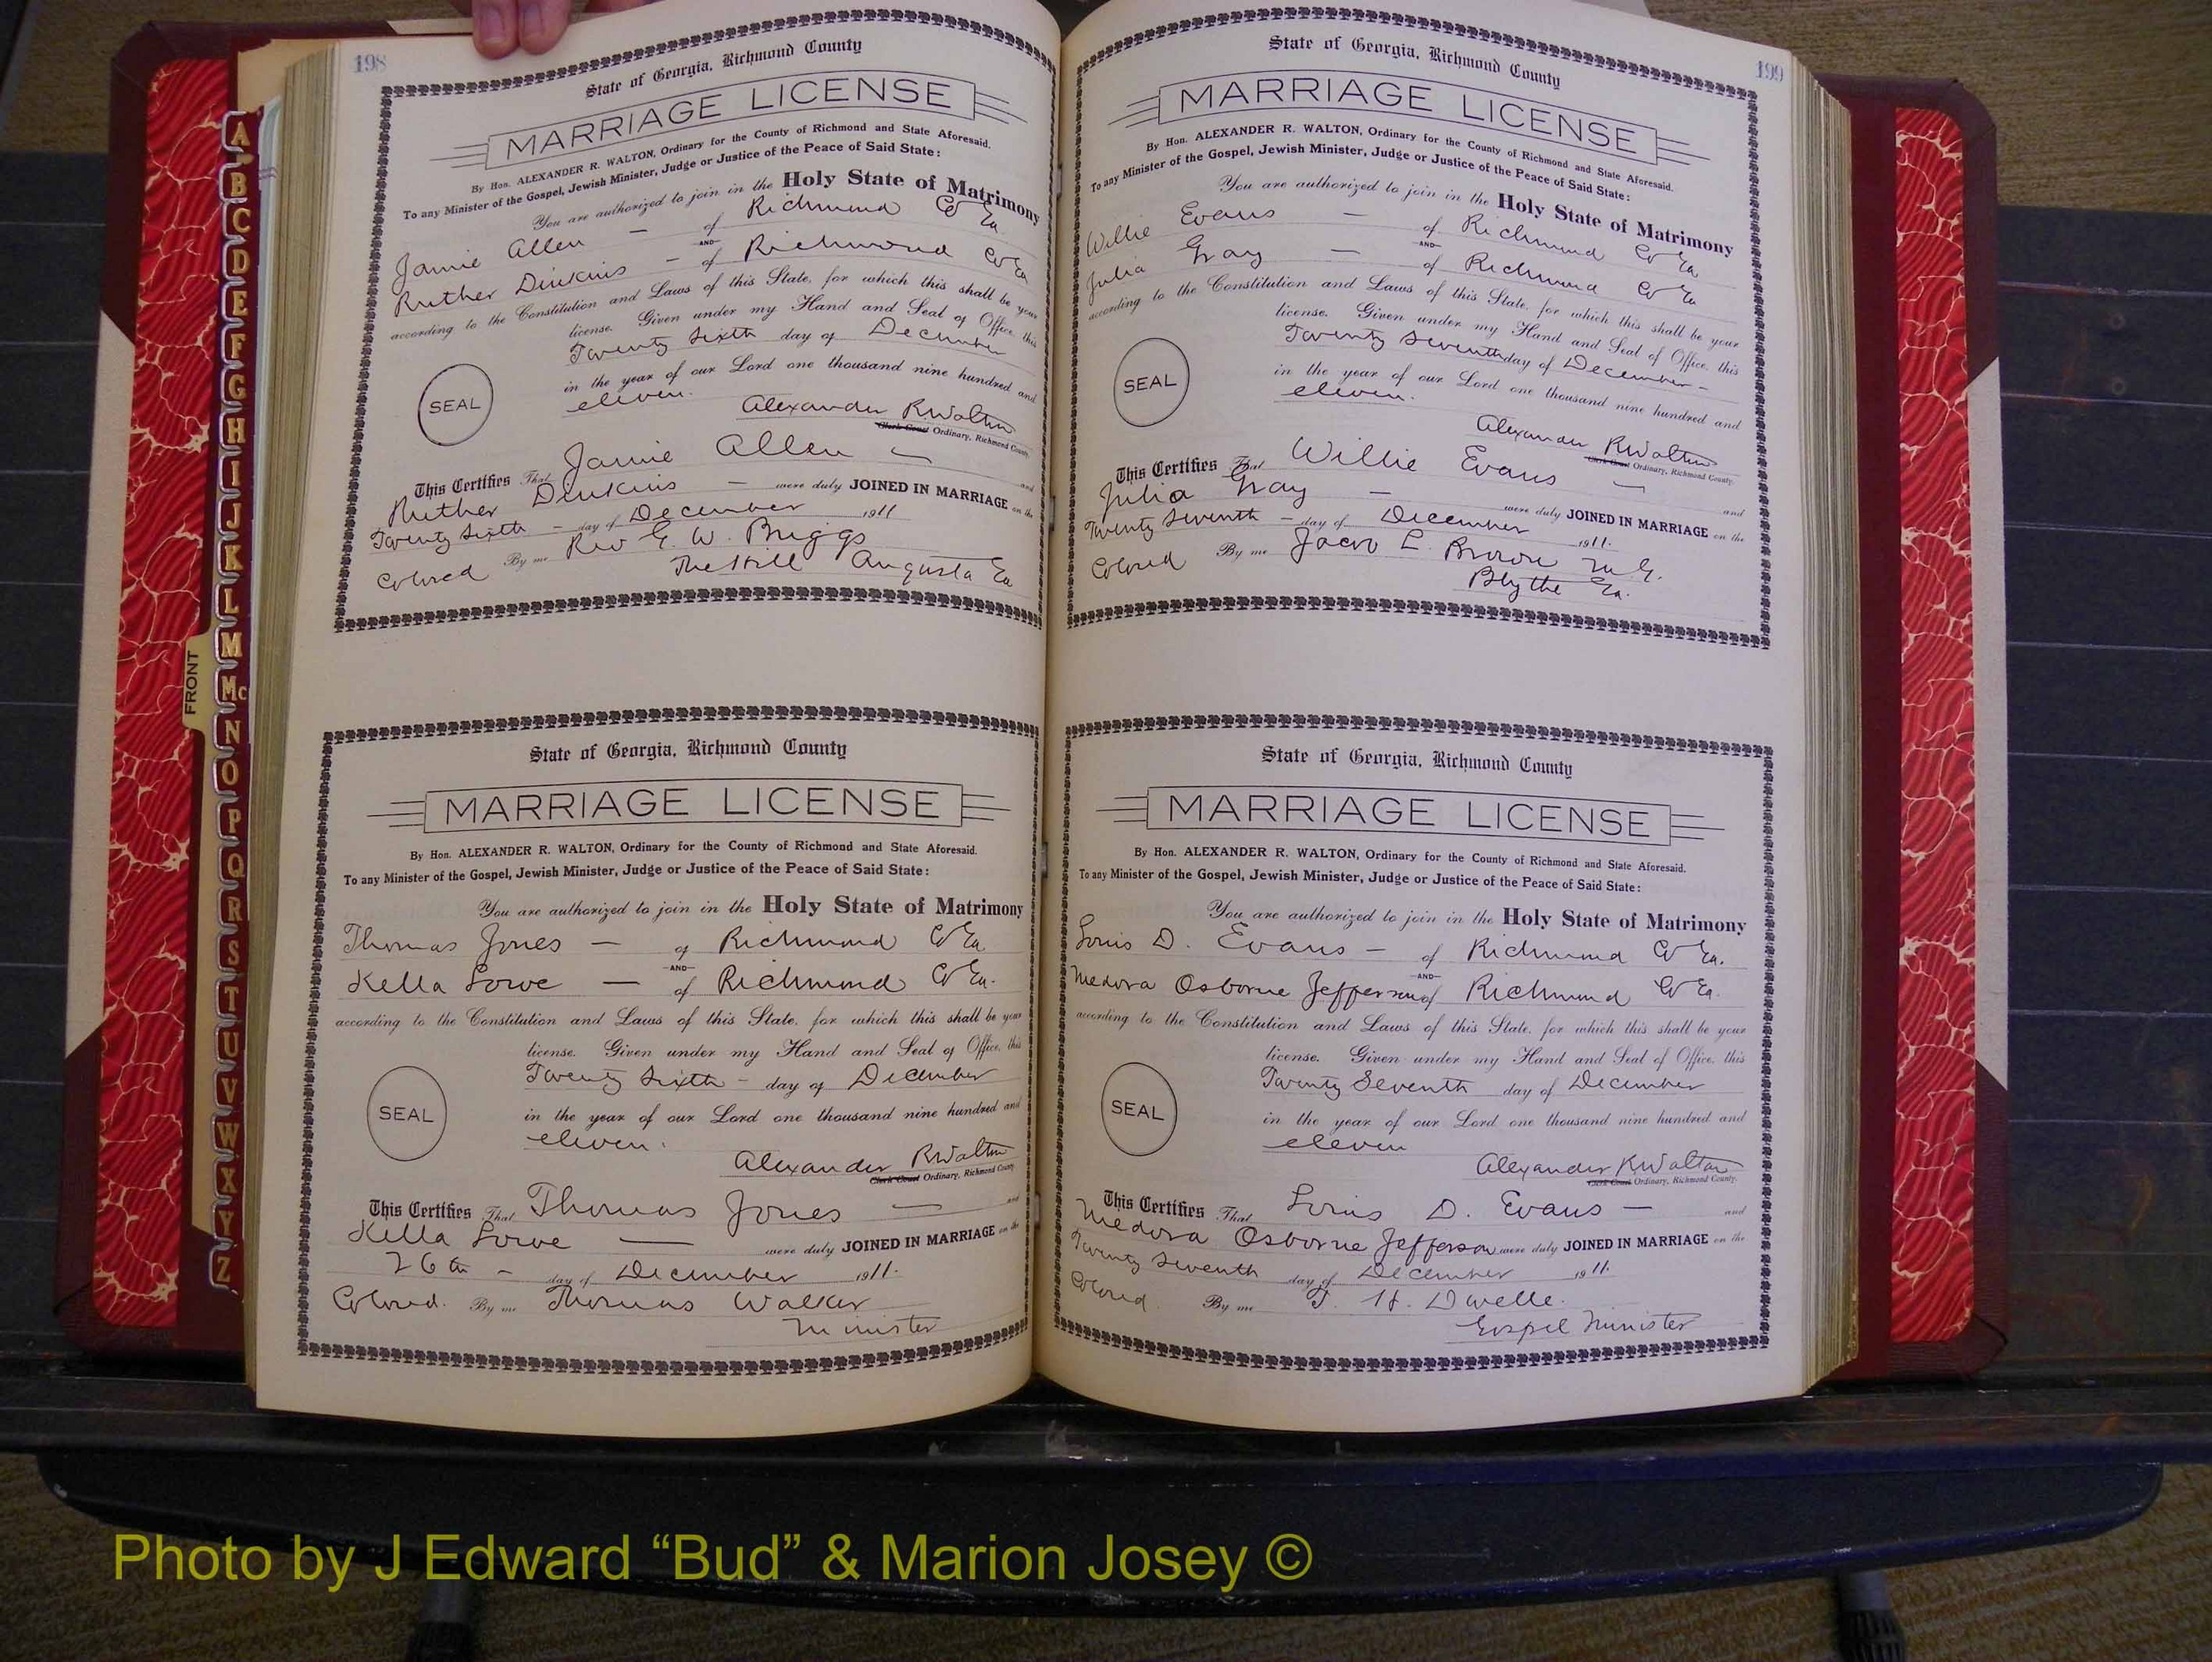 198
State of Georgia, Richmond County
MARRIAGE LICENSE
By Hon. ALEXANDER R. WALTON, Ordinary for the County of Richmond and State Aforesaid.
To any Minister of the Gospel, Jewish Minister, Judge or Justice of the Peace of Said State:
You are authorized to join in the Holy State of Matrimony
Jamie Allen — of Richmond Co Ga
AND
Ruther Dinkins — of Richmond Co Ga
according to the Constitution and Laws of this State, for which this shall be your
license. Given under my Hand and Seal of Office, this
Twenty Sixth day of December
in the year of our Lord one thousand nine hundred and
SEAL
eleven.
Alexander R Walton
Clerk Court Ordinary, Richmond County.
This Certifies That Jamie Allen — and
Ruther Dinkins — were duly JOINED IN MARRIAGE on the
Twenty Sixth — day of December 1911
Colored By me Rev G. W. Briggs
The Hill Augusta Ga
State of Georgia, Richmond County
MARRIAGE LICENSE
By Hon. ALEXANDER R. WALTON, Ordinary for the County of Richmond and State Aforesaid.
To any Minister of the Gospel, Jewish Minister, Judge or Justice of the Peace of Said State:
You are authorized to join in the Holy State of Matrimony
Thomas Jones — of Richmond Co Ga
AND
Kella Lowe — of Richmond Co Ga.
according to the Constitution and Laws of this State, for which this shall be your
license. Given under my Hand and Seal of Office, this
Twenty Sixth — day of December
in the year of our Lord one thousand nine hundred and
SEAL
eleven.
Alexander R Walton
Clerk Court Ordinary, Richmond County
This Certifies That Thomas Jones — and
Kella Lowe — were duly JOINED IN MARRIAGE on the
26th — day of December 1911.
Colored. By me Thomas Walker
Minister
199
State of Georgia, Richmond County
MARRIAGE LICENSE
By Hon. ALEXANDER R. WALTON, Ordinary for the County of Richmond and State Aforesaid.
To any Minister of the Gospel, Jewish Minister, Judge or Justice of the Peace of Said State:
You are authorized to join in the Holy State of Matrimony
Willie Evans — of Richmond Co Ga
AND
Julia Gray — of Richmond Co Ga
according to the Constitution and Laws of this State, for which this shall be your
license. Given under my Hand and Seal of Office, this
Twenty Seventh day of December —
in the year of our Lord one thousand nine hundred and
SEAL
eleven.
Alexander R Walton
Clerk Court Ordinary, Richmond County.
This Certifies That Willie Evans — and
Julia Gray — were duly JOINED IN MARRIAGE on the
Twenty Seventh — day of December 1911.
Colored By me Jacob L. Brown M. G.
Blythe Ga.
State of Georgia, Richmond County
MARRIAGE LICENSE
By Hon. ALEXANDER R. WALTON, Ordinary for the County of Richmond and State Aforesaid.
To any Minister of the Gospel, Jewish Minister, Judge or Justice of the Peace of Said State:
You are authorized to join in the Holy State of Matrimony
Louis D. Evans — of Richmond Co Ga.
AND
Medora Osborne Jefferson of Richmond Co Ga.
according to the Constitution and Laws of this State, for which this shall be your
license. Given under my Hand and Seal of Office, this
Twenty Seventh day of December
in the year of our Lord one thousand nine hundred and
SEAL
eleven
Alexander R Walton
Clerk Court Ordinary, Richmond County.
This Certifies That Louis D. Evans — and
Medora Osborne Jefferson were duly JOINED IN MARRIAGE on the
Twenty Seventh day of December 1911.
Colored. By me J. H. Dwelle.
Gospel Minister
FRONT
A
B
C
D
E
F
G
H
I
J
K
L
M
Mc
N
O
P
Q
R
S
T
U
V
W
X
Y
Z
Photo by J Edward “Bud” & Marion Josey ©